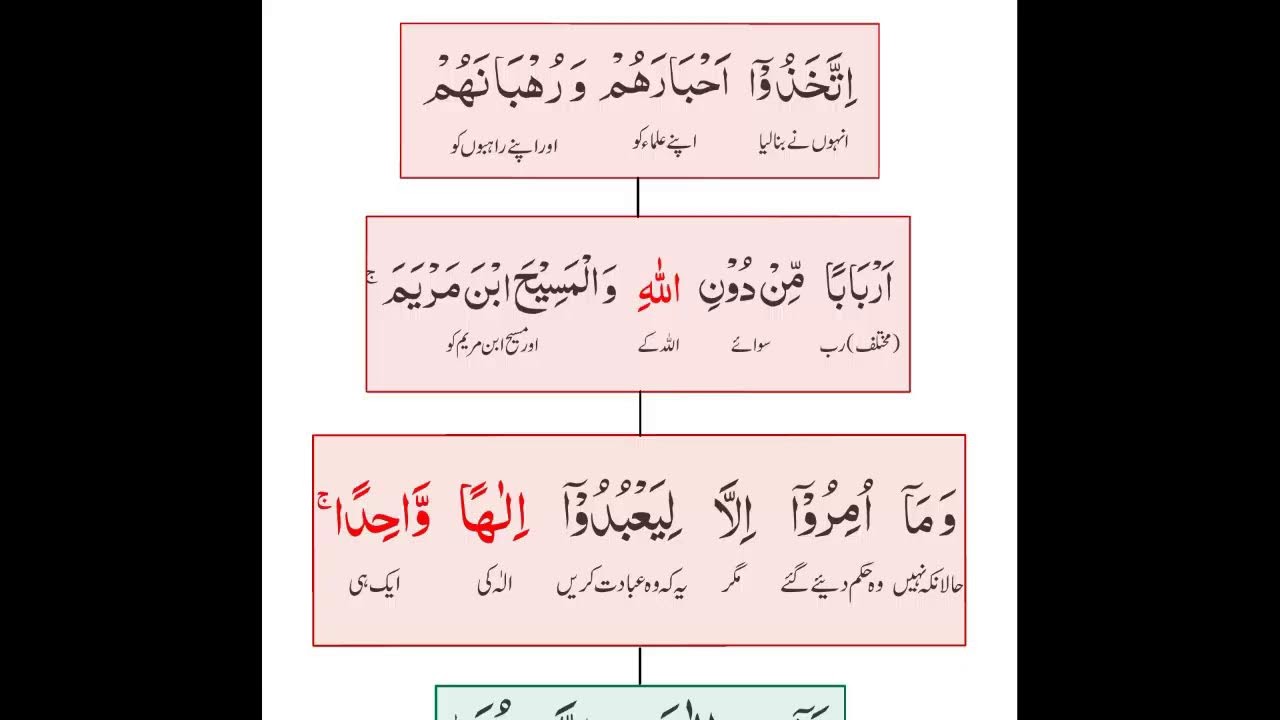 اِتَّخَذُوْۤا اَحْبَارَهُمْ وَ رُهْبَانَهُمْ
انہوں نے بنا لیا اپنے علماء کو اور اپنے راہبوں کو
اَرْبَابًا مِّنْ دُوْنِ اللّٰهِ وَ الْمَسِیْحَ ابْنَ مَرْیَمَ ۚ
(مختلف) رب سوائے اللہ کے اور مسیح ابن مریم کو
وَ مَاۤ اُمِرُوْۤا اِلَّا لِیَعْبُدُوْۤا اِلٰهًا وَّاحِدًا ۚ
حالانکہ نہیں وہ حکم دیئے گئے مگر یہ کہ وہ عبادت کریں الٰہ کی ایک ہی